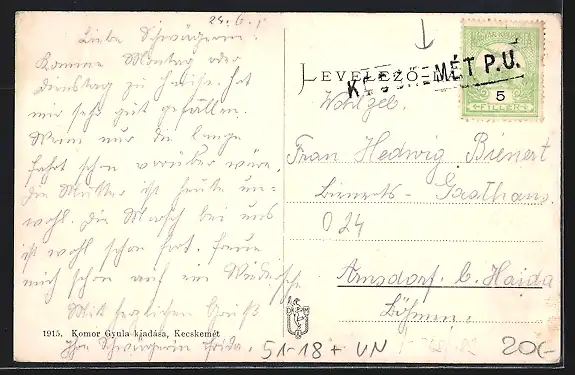 23. 6. 1
Liebe Schwägerin:
Komme Montag oder
Dienstag zu Hause. hat
mir sehr gut gefallen.
Wenn nur die lange
fahrt schon vorüber wäre.
Die Mutter ist heute un-
wohl. Die Marsch bei uns
ist wohl schon fort. freue
mich schon auf ein
Mit herzlichen Gruß
Ihre Schwägerin Frida.
1915. Komor Gyula kiadása, Kecskemét
LEVELEZŐ
KECSKEMÉT P.U.
5
FILLER
Wohlgeb.
Frau Hedwig Bienert
Bienerts - Gasthaus
O 24
Arnsdorf b. Haida
Böhmen.
51-18 + UN
20,-